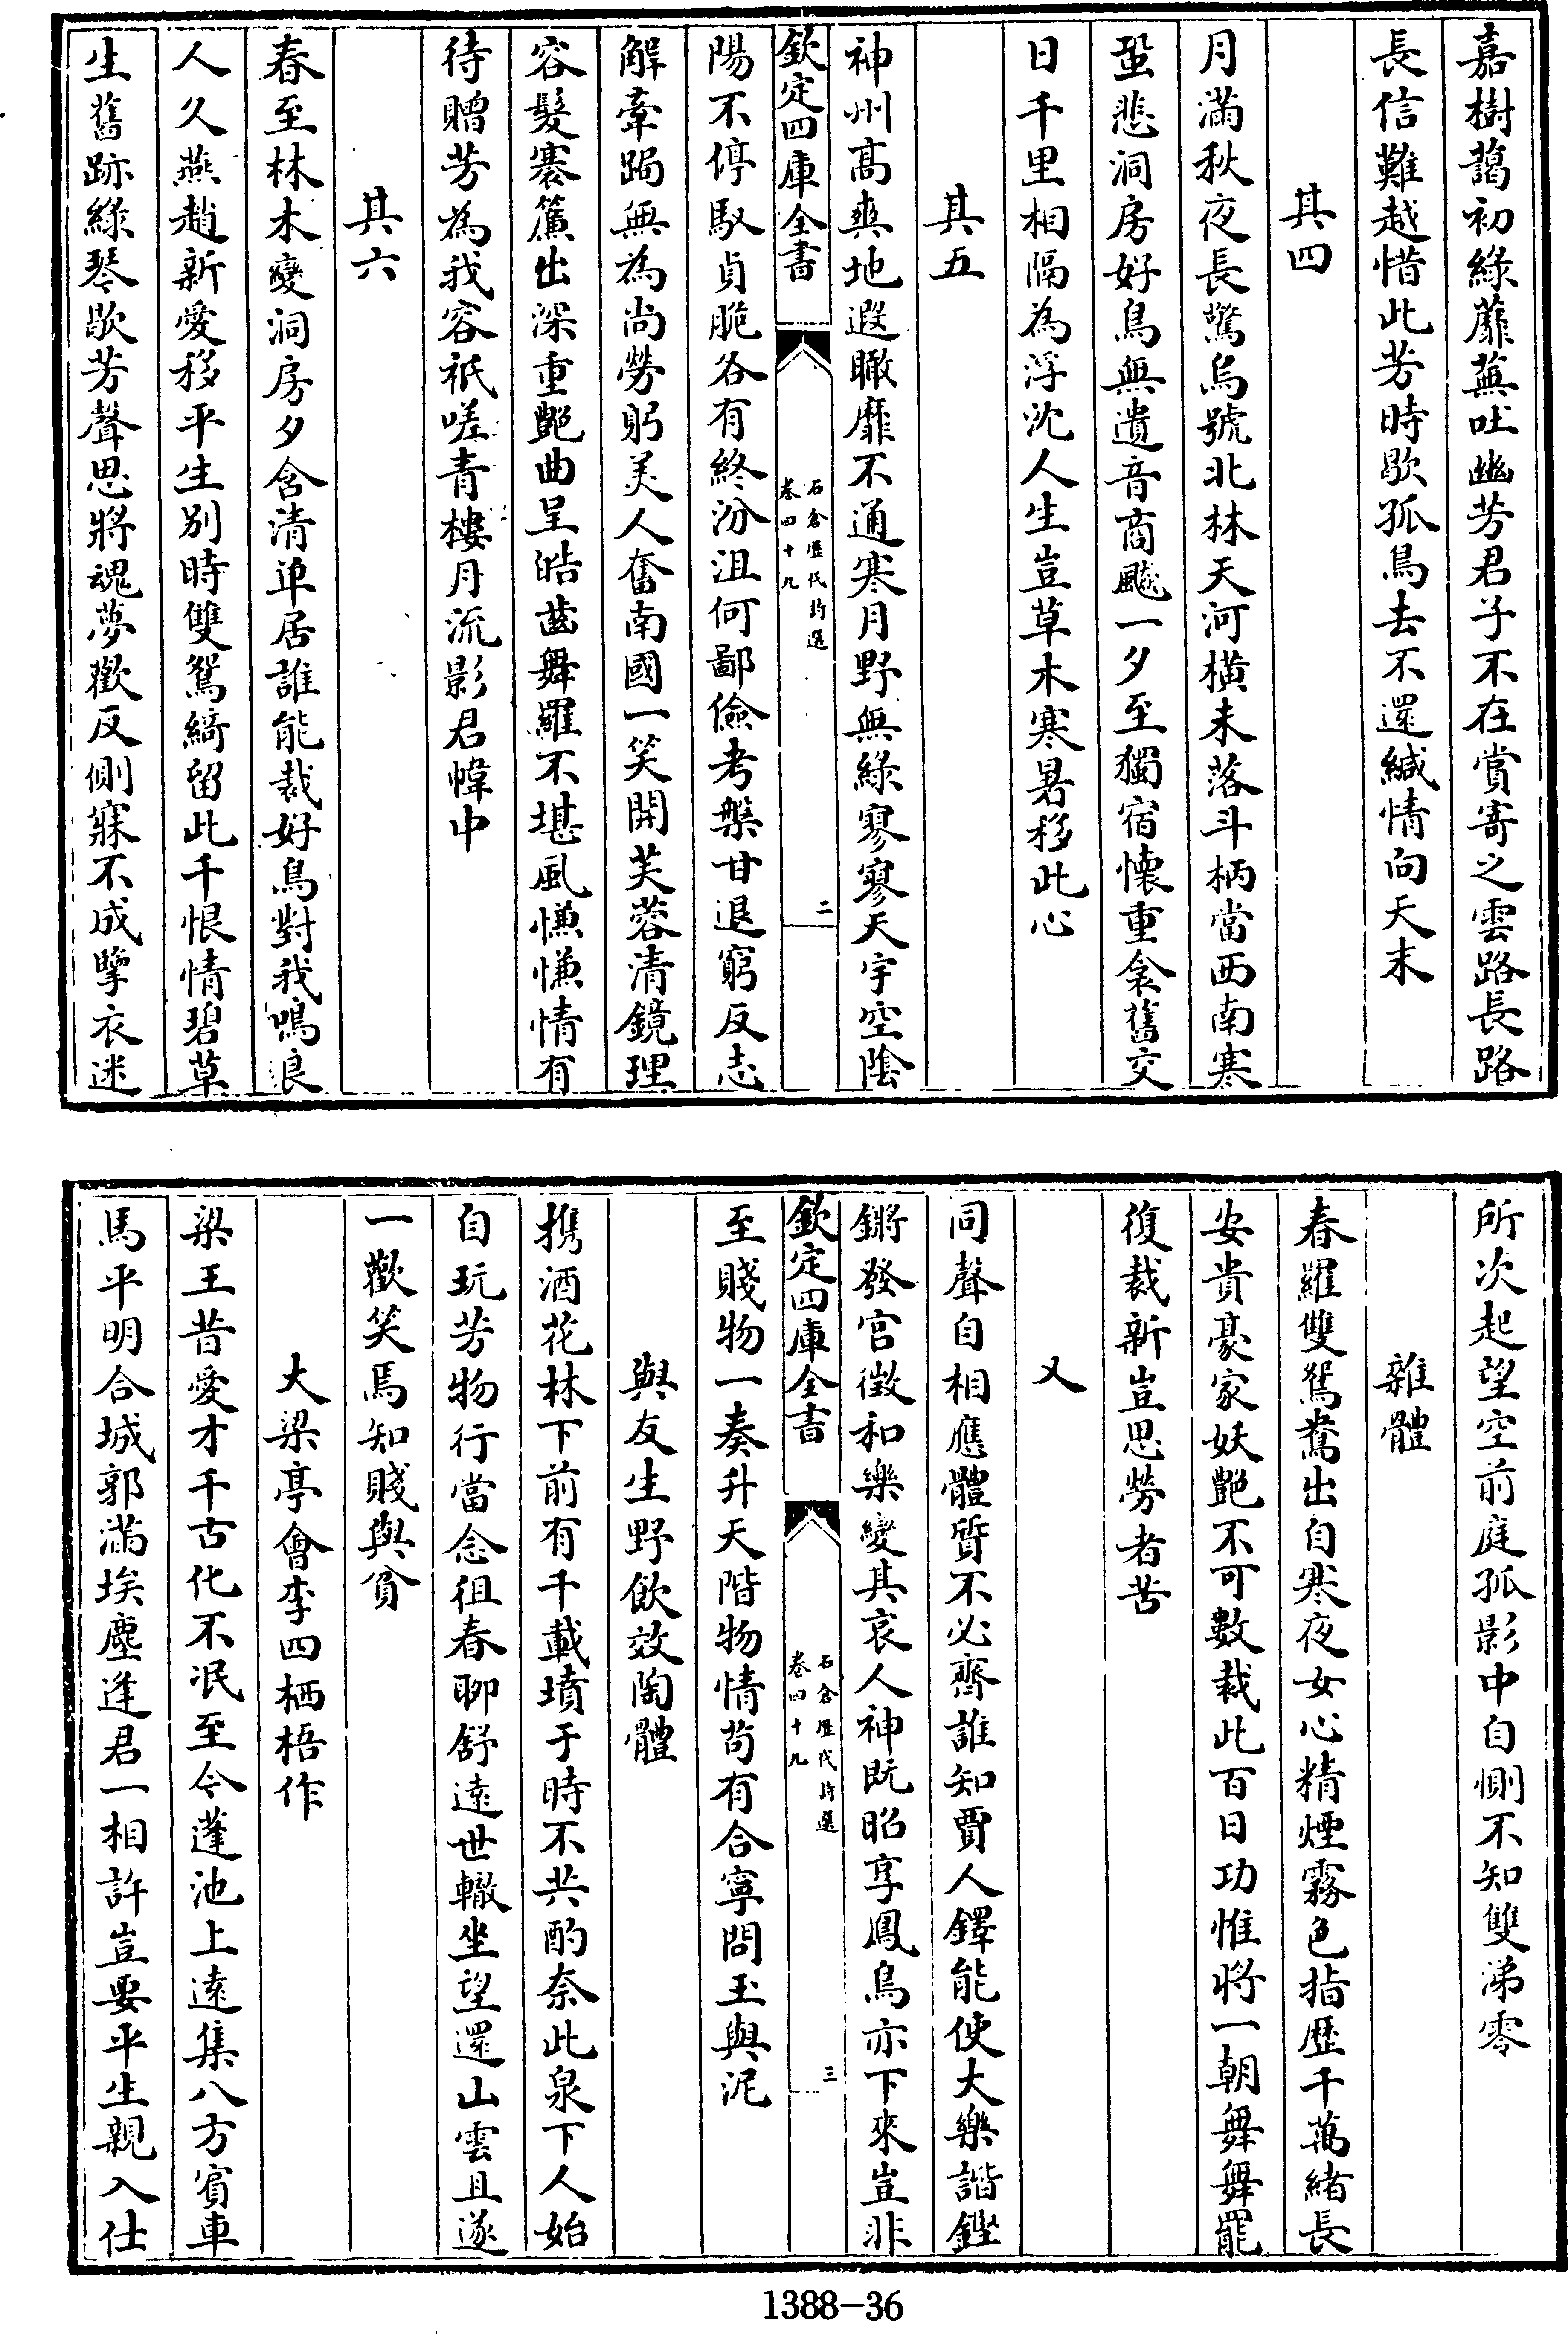 嘉樹藹初綠蘼蕪吐幽芳君子不在賞寄之雲路長路
長信難越惜此芳時歇孤鳥去不還緘情向天末
其四
月滿秋夜長驚烏號北林天河橫未落斗柄當西南寒
蛩悲洞房好鳥無遺音商飈一夕至獨宿懷重衾舊交
日千里相隔為浮沈人生豈草木寒暑移此心
其五
神州高爽地遐瞰靡不通寒月野無綠寥寥天宇空陰
欽定四庫全書
石倉歷代詩選
卷四十九
二
陽不停馭貞脆各有終汾沮何鄙儉考槃甘退窮反志
解牽跼無為尚勞躬美人奮南國一笑開芙蓉清鏡理
容髮褰簾出深重艷曲呈皓齒舞羅不堪風慊慊情有
待贈芳為我容祇嗟青樓月流影君幃中
其六
春至林木變洞房夕含清单居誰能裁好鳥對我鳴良
人久燕趙新愛移平生別時雙鴛綺留此千恨情碧草
生舊跡綠琴歇芳聲思將魂夢歡反側寐不成擥衣迷
所次起望空前庭孤影中自惻不知雙涕零
雜體
春羅雙鴛鴦出自寒夜女心精煙霧色指歷千萬緒長
安貴豪家妖艷不可數裁此百日功惟將一朝舞舞罷
復裁新豈思勞者苦
又
同聲自相應體質不必齊誰知賈人鐸能使大樂諧鏗
鏘發宮徵和樂變其哀人神既昭享鳳鳥亦下來豈非
欽定四庫全書
石倉歷代詩選
卷四十九
三
至賤物一奏升天階物情苟有合寧問玉與泥
與友生野飲效陶體
携酒花林下前有千載墳于時不共酌奈此泉下人始
自玩芳物行當念徂春聊舒遠世轍坐望還山雲且遂
一歡笑焉知賤與貧
大梁亭會李四栖梧作
梁王昔愛才千古化不泯至今蓬池上遠集八方賓車
馬平明合城郭滿埃塵逢君一相許豈要平生親入仕
1388-36